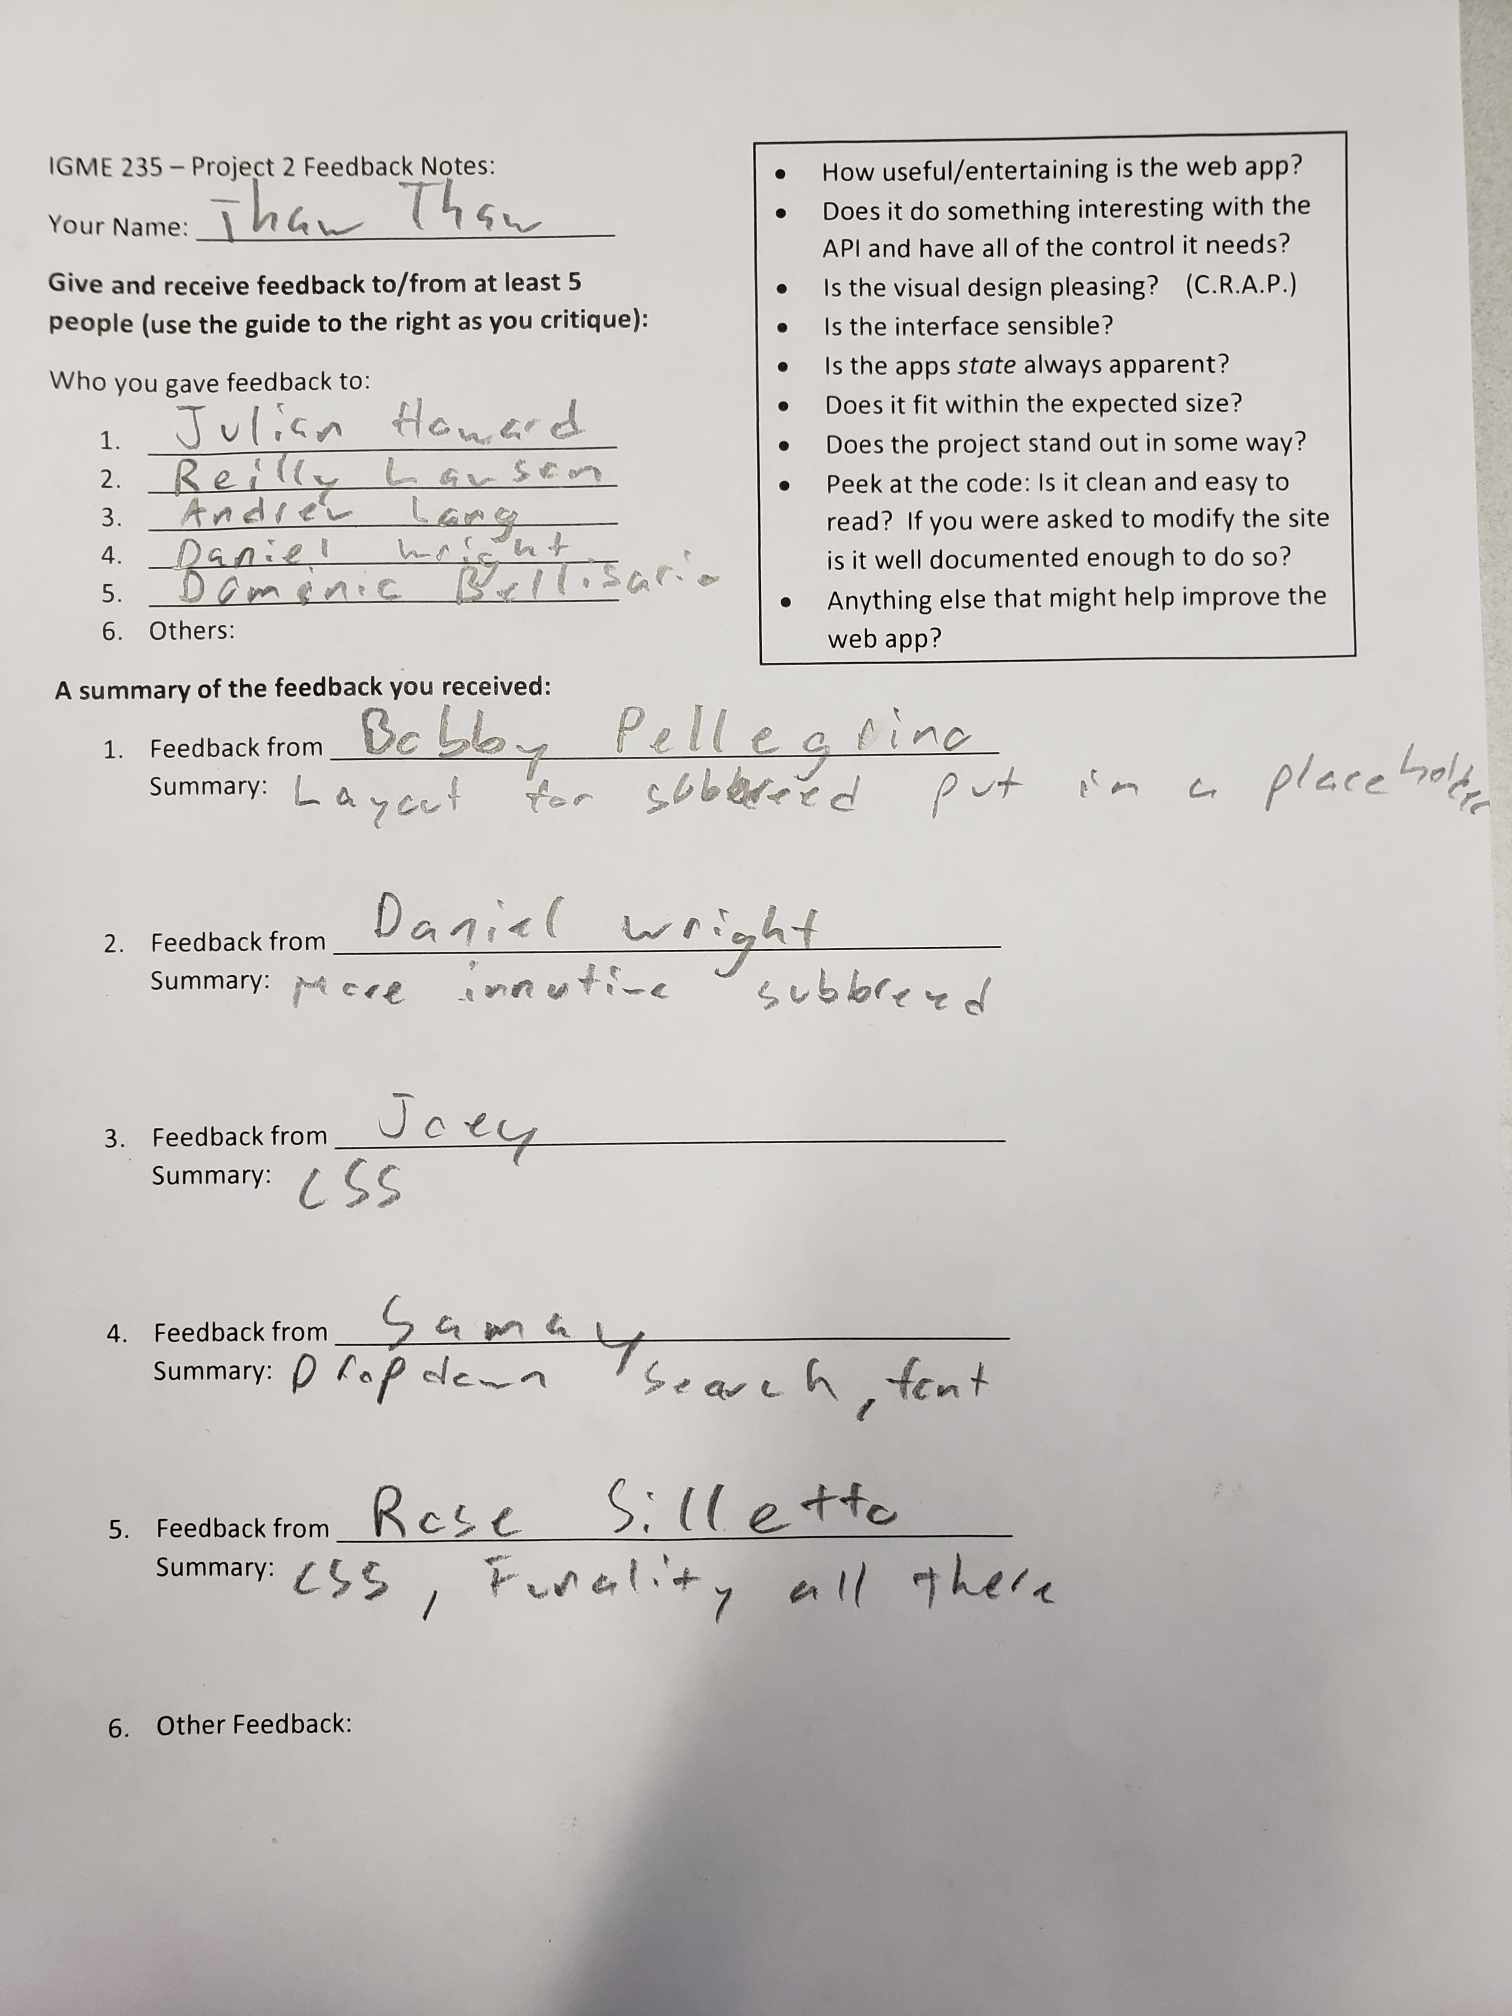 IGME 235 – Project 2 Feedback Notes:
Your Name: Thaw Thaw
Give and receive feedback to/from at least 5
people (use the guide to the right as you critique):
Who you gave feedback to:
1. Julian Howard
2. Reilly
3. Andrew Lang
4. Daniel Wright
5. Domenic Bellisario
6. Others:
• How useful/entertaining is the web app?
• Does it do something interesting with the
API and have all of the control it needs?
• Is the visual design pleasing? (C.R.A.P.)
• Is the interface sensible?
• Is the apps state always apparent?
• Does it fit within the expected size?
• Does the project stand out in some way?
• Peek at the code: Is it clean and easy to
read? If you were asked to modify the site
is it well documented enough to do so?
• Anything else that might help improve the
web app?
A summary of the feedback you received:
1. Feedback from Bobby Pellegrino
Summary: Layout for subbreed put in a placeholder
2. Feedback from Daniel Wright
Summary: More subbreed
3. Feedback from Joey
Summary: CSS
4. Feedback from Samay
Summary: Dropdown search, font
5. Feedback from Rose Silletto
Summary: CSS, Funality all there
6. Other Feedback: